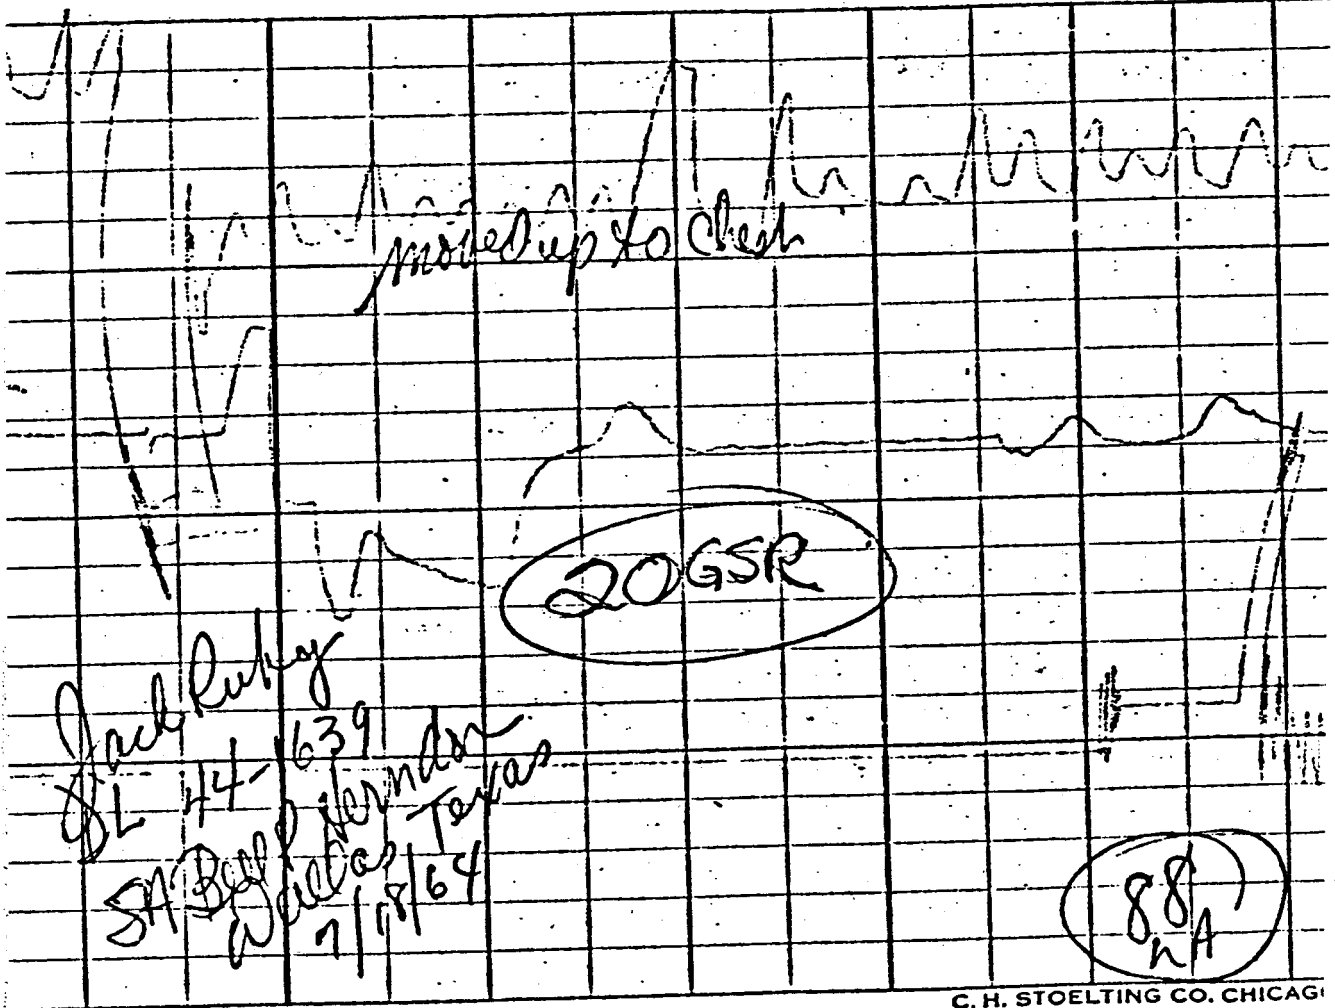 moved up to chest
20 GSR
Jack Ruby
DL 44-1639
SA Bell P Herndon
Dallas, Texas
7/18/64
88
nA
C. H. STOELTING CO. CHICAG